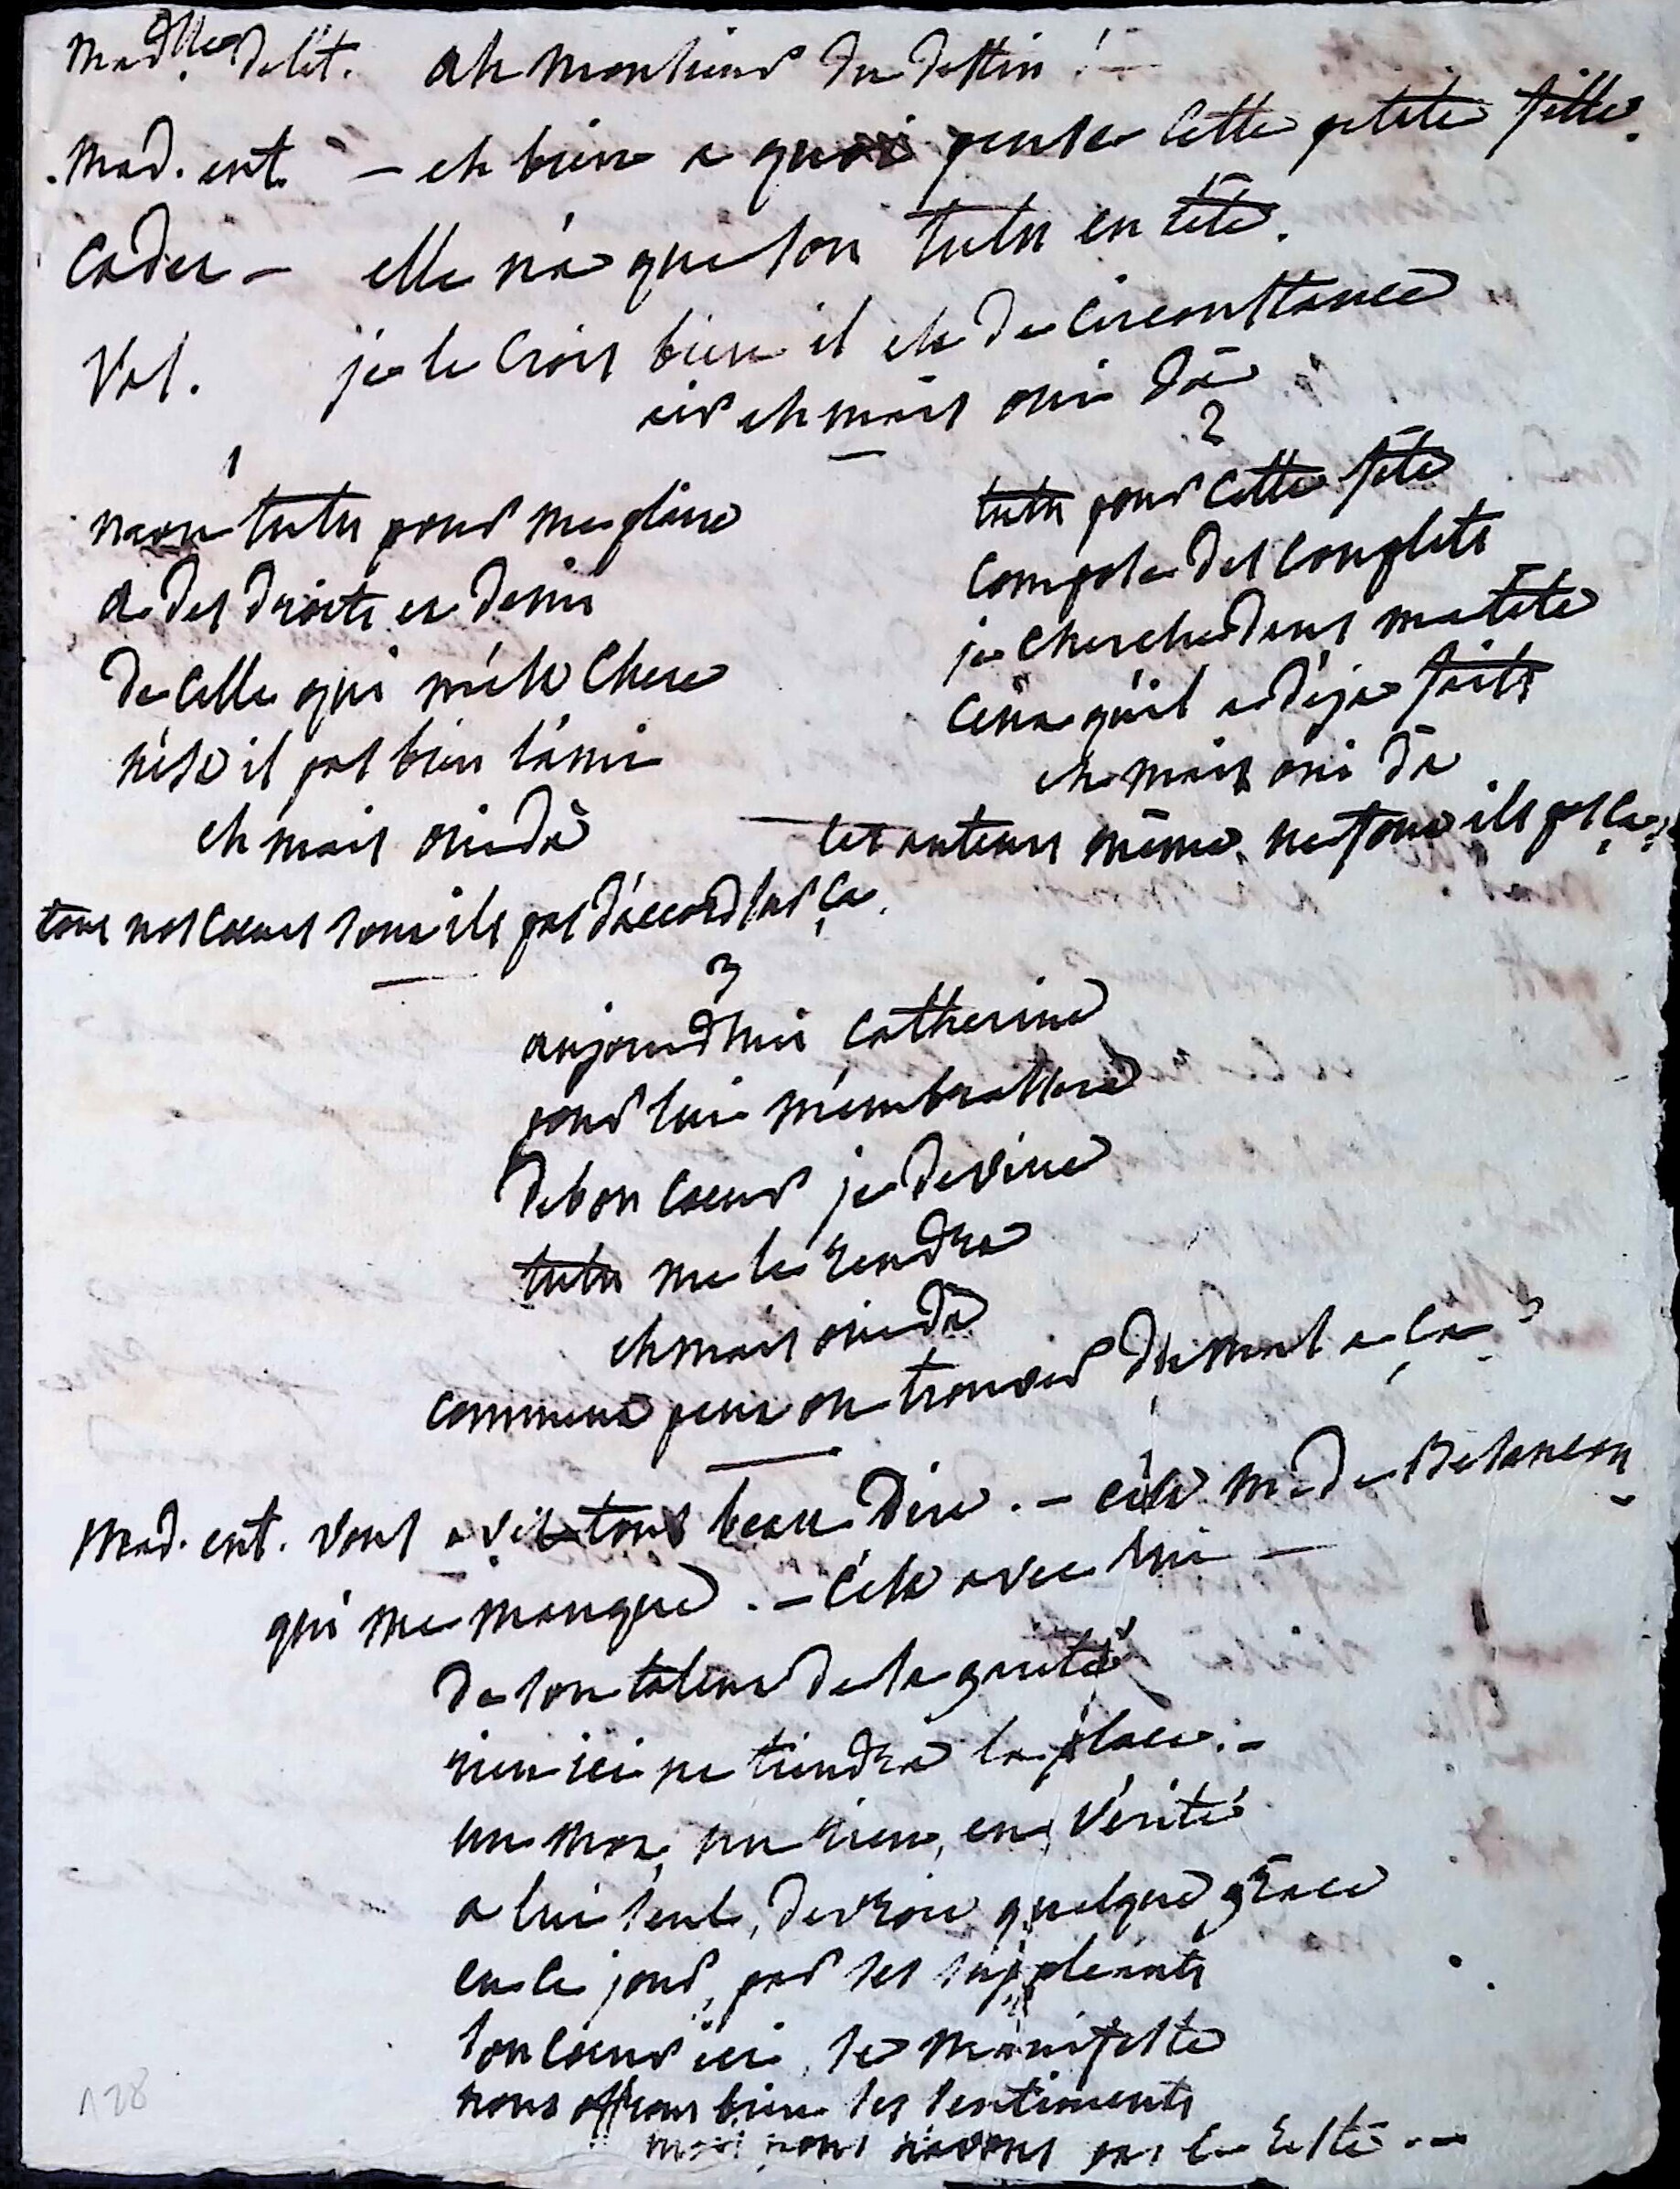 Mad.lle delit. ah monsieur du destin !
Mad. ent. - eh bien a quoi pense cette petite fille.
Cadet - elle n'a que son tutu en tête.
Val. je le crois bien il est de circonstance
air eh mais oui dà
1
mon tutu pour me plaire
a des droits et demi
de celle qui m'est chere
n'est il pas bien l'ami
eh mais oui dà
tous nos coeurs sont ils pas d'accord sur ça.
2
tutu pour cette fête
compose des couplets
je cherche dans ma tête
c'en qu'il a déja faits
eh mais oui dà
les auteurs même, ne font ils pas ça ?
3
aujourdhui Catherine
pour lui m'embrassera
de bon coeur je devine
tutu me le rendra
eh mais oui dà
comment peut on trouver du mal a ça ?
Mad. ent. vous avés tous beau dire. - c'est m. de Besançon
qui me manque. - c'est avec lui -
de son talent de sa gaieté
rien ici ne tiendra la place. -
un mot, un rien, en vérité
a lui seul, devroit quelque grâce
en ce jour, par ses suppleants
son coeur ici, se manifeste
nous offrons bien ses sentiments
mais nous n'avons pas le reste. -
128